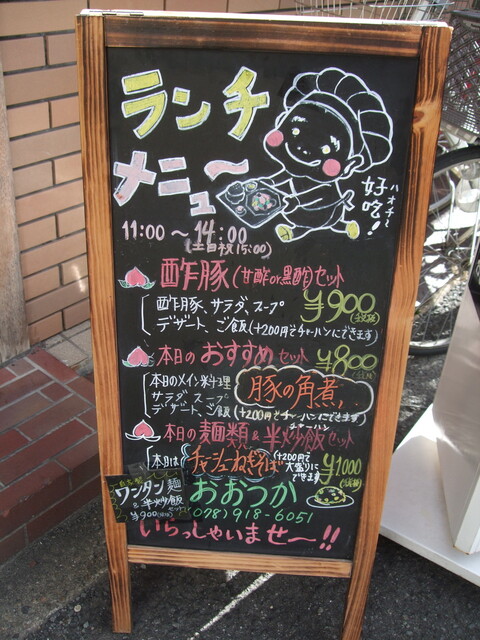 ランチ
メニュ〜
好吃!
ハオチ〜
11:00〜14:00
(土日祝15:00)
酢豚(甘酢or黒酢)セット
酢豚、サラダ、スープ
デザート、ご飯(+200円でチャーハンにできます)
¥900
本日のおすすめセット ¥800
本日のメイン料理
サラダ スープ
デザート、ご飯(+200円でチャーハンにできます)
チャーハン
豚の角煮
本日の麺類&半炒飯セット
本日は チャーシューねぎそば
(+200円で
大盛りに
できます
¥1000
ワンタン麺
&半炒飯
セット
¥900
おおつか
078)918-6051
いらっしゃいませ〜!!